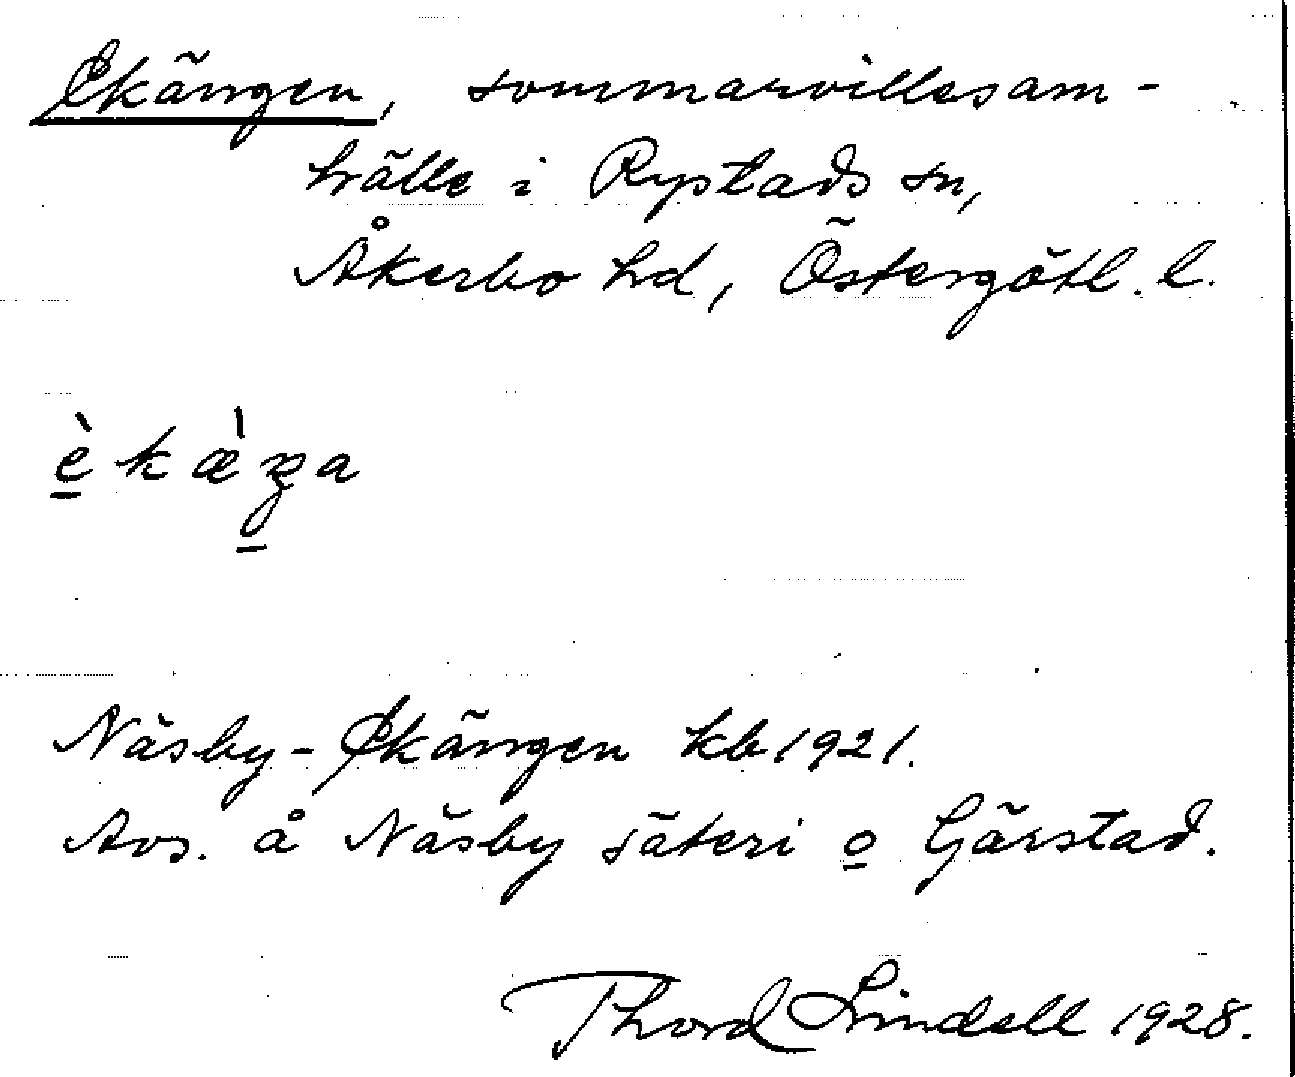 Ekängen, sommarvillasam-
hälle i Rystads sn,
Åkerbo hd, Östergötl. l.
èkæ̀ŋa
Näsby-Ekängen kb 1921.
Avs. å Näsby säteri o Gärstad.
Thord Lindell 1928.